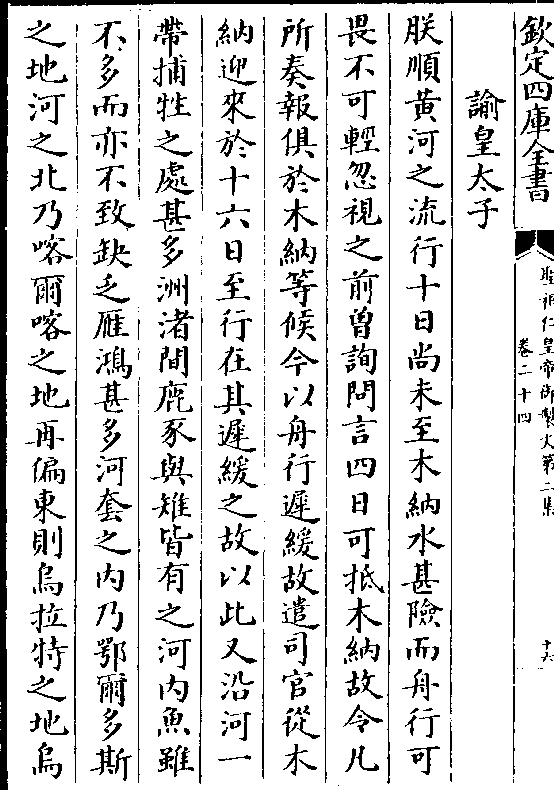 欽定四庫全書
聖祖仁皇帝御製文第二集
卷二十四
十六
諭皇太子
朕順黃河之流行十日尚未至木納水甚險而舟行可
畏不可輕忽視之前曾詢問言四日可抵木納故令凡
所奏報俱於木納等候今以舟行遲緩故遣司官從木
納迎來於十六日至行在其遲緩之故以此又沿河一
帶捕牲之處甚多洲渚間鹿豕與雉皆有之河内魚雖
不多而亦不致缺乏雁鴻甚多河套之内乃鄂爾多斯
之地河之北乃喀爾喀之地再偏東則烏拉特之地烏